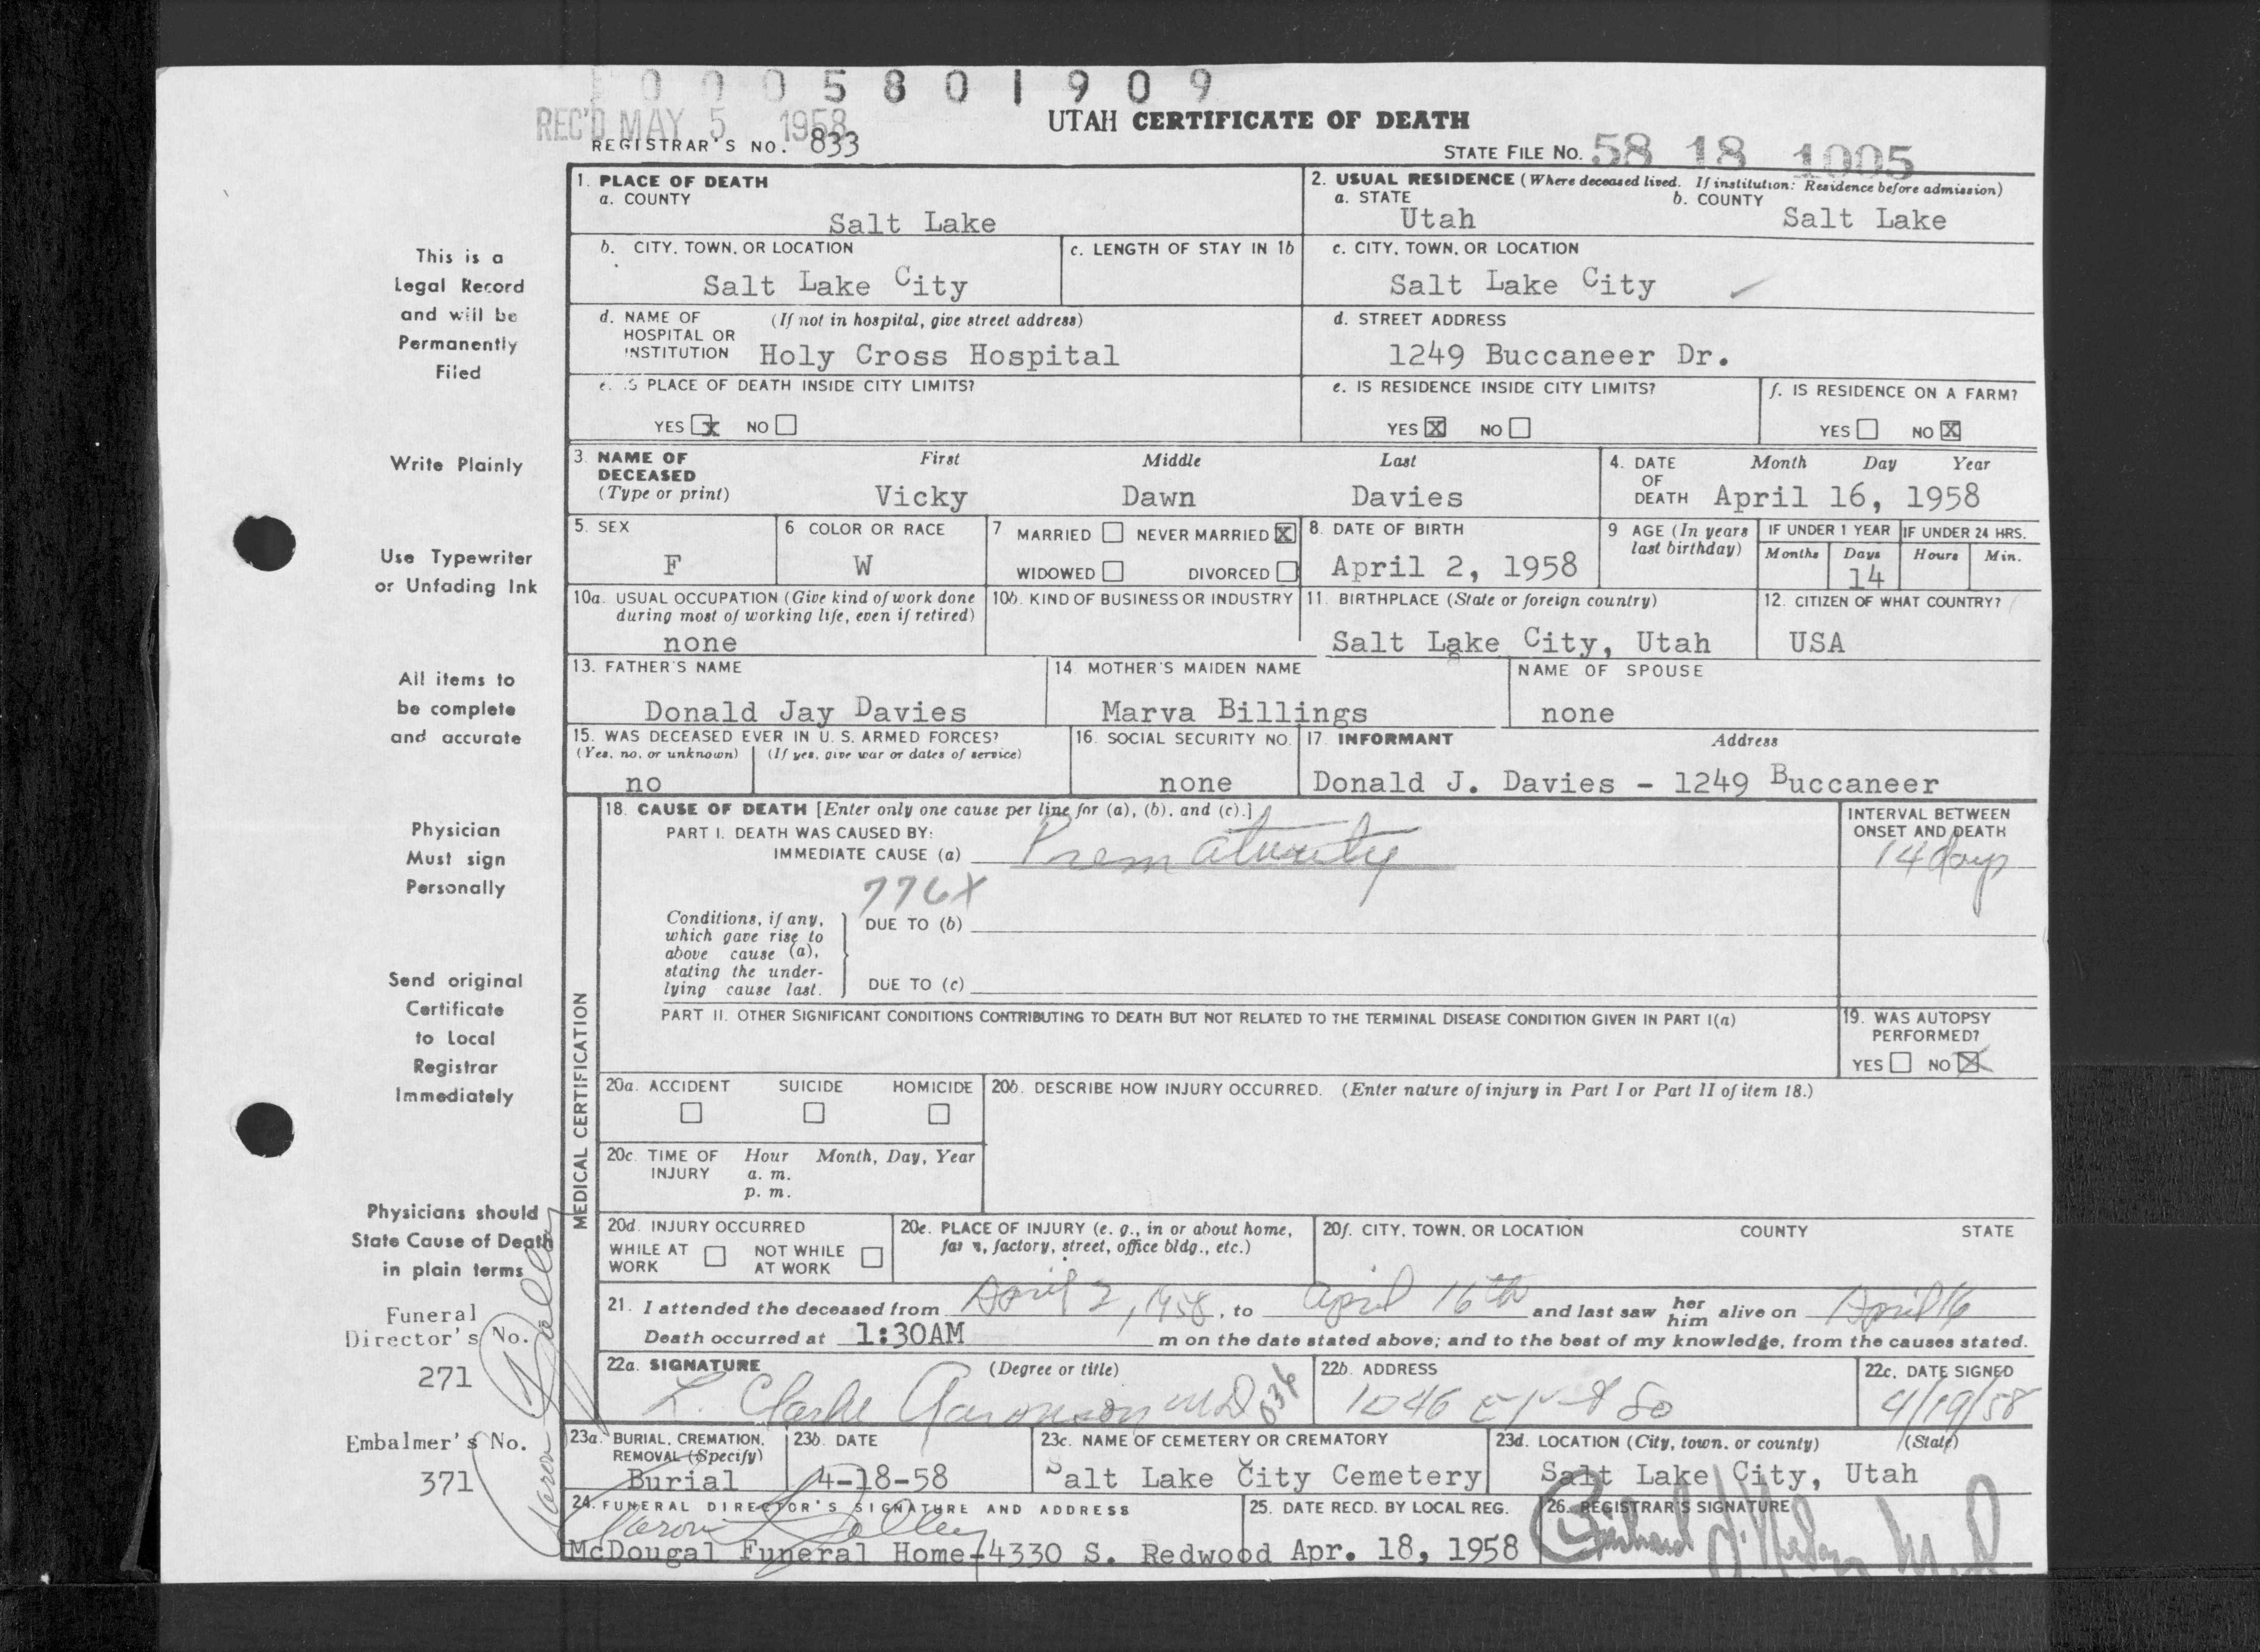 0 0 0 5 8 0 1 9 0 9
REC'D MAY 5 1958
UTAH CERTIFICATE OF DEATH
REGISTRAR'S NO. 833
STATE FILE NO. 58 18 1005
This is a
Legal Record
and will be
Permanently
Filed
Write Plainly
Use Typewriter
or Unfading Ink
All items to
be complete
and accurate
Physician
Must sign
Personally
Send original
Certificate
to Local
Registrar
Immediately
Physicians should
State Cause of Death
in plain terms
Funeral
Director's No.
271
Embalmer's No.
371
1. PLACE OF DEATH
a. COUNTY
Salt Lake
2. USUAL RESIDENCE (Where deceased lived. If institution: Residence before admission)
a. STATE b. COUNTY
Utah Salt Lake
b. CITY, TOWN, OR LOCATION
Salt Lake City
c. LENGTH OF STAY IN 1b
c. CITY, TOWN, OR LOCATION
Salt Lake City
d. NAME OF (If not in hospital, give street address)
HOSPITAL OR
INSTITUTION Holy Cross Hospital
d. STREET ADDRESS
1249 Buccaneer Dr.
e. IS PLACE OF DEATH INSIDE CITY LIMITS?
YES X NO
e. IS RESIDENCE INSIDE CITY LIMITS?
YES X NO
f. IS RESIDENCE ON A FARM?
YES NO X
3. NAME OF First Middle Last
DECEASED
(Type or print) Vicky Dawn Davies
4. DATE Month Day Year
OF
DEATH April 16, 1958
5. SEX
F
6 COLOR OR RACE
W
7 MARRIED NEVER MARRIED X
WIDOWED DIVORCED
8. DATE OF BIRTH
April 2, 1958
9 AGE (In years
last birthday)
IF UNDER 1 YEAR IF UNDER 24 HRS.
Months Days Hours Min.
14
10a. USUAL OCCUPATION (Give kind of work done
during most of working life, even if retired)
none
10b. KIND OF BUSINESS OR INDUSTRY
11. BIRTHPLACE (State or foreign country)
Salt Lake City, Utah
12. CITIZEN OF WHAT COUNTRY?
USA
13. FATHER'S NAME
Donald Jay Davies
14 MOTHER'S MAIDEN NAME
Marva Billings
NAME OF SPOUSE
none
15. WAS DECEASED EVER IN U. S. ARMED FORCES?
(Yes, no, or unknown) (If yes, give war or dates of service)
no
16. SOCIAL SECURITY NO.
none
17. INFORMANT Address
Donald J. Davies - 1249 Buccaneer
MEDICAL CERTIFICATION
18. CAUSE OF DEATH [Enter only one cause per line for (a), (b), and (c).]
PART I. DEATH WAS CAUSED BY:
IMMEDIATE CAUSE (a) Prematurity
776X
INTERVAL BETWEEN
ONSET AND DEATH
14 days
Conditions, if any,
which gave rise to
above cause (a),
stating the under-
lying cause last.
DUE TO (b)
DUE TO (c)
PART II. OTHER SIGNIFICANT CONDITIONS CONTRIBUTING TO DEATH BUT NOT RELATED TO THE TERMINAL DISEASE CONDITION GIVEN IN PART I(a)
19. WAS AUTOPSY
PERFORMED?
YES NO X
20a. ACCIDENT SUICIDE HOMICIDE
20b. DESCRIBE HOW INJURY OCCURRED. (Enter nature of injury in Part I or Part II of item 18.)
20c. TIME OF Hour Month, Day, Year
INJURY a. m.
p. m.
20d. INJURY OCCURRED
WHILE AT NOT WHILE
WORK AT WORK
20e. PLACE OF INJURY (e. g., in or about home,
farm, factory, street, office bldg., etc.)
20f. CITY, TOWN, OR LOCATION COUNTY STATE
21. I attended the deceased from April 2, 1958, to April 16th and last saw her him alive on April 16
Death occurred at 1:30AM m on the date stated above; and to the best of my knowledge, from the causes stated.
22a. SIGNATURE (Degree or title)
L. Clarke Aaronson MD 036
22b. ADDRESS
1046 E 1st So
22c. DATE SIGNED
4/19/58
23a. BURIAL, CREMATION,
REMOVAL (Specify)
Burial
23b. DATE
4-18-58
23c. NAME OF CEMETERY OR CREMATORY
Salt Lake City Cemetery
23d. LOCATION (City, town, or county) (State)
Salt Lake City, Utah
24. FUNERAL DIRECTOR'S SIGNATURE AND ADDRESS
McDougal Funeral Home-4330 S. Redwood
25. DATE RECD. BY LOCAL REG.
Apr. 18, 1958
26. REGISTRAR'S SIGNATURE